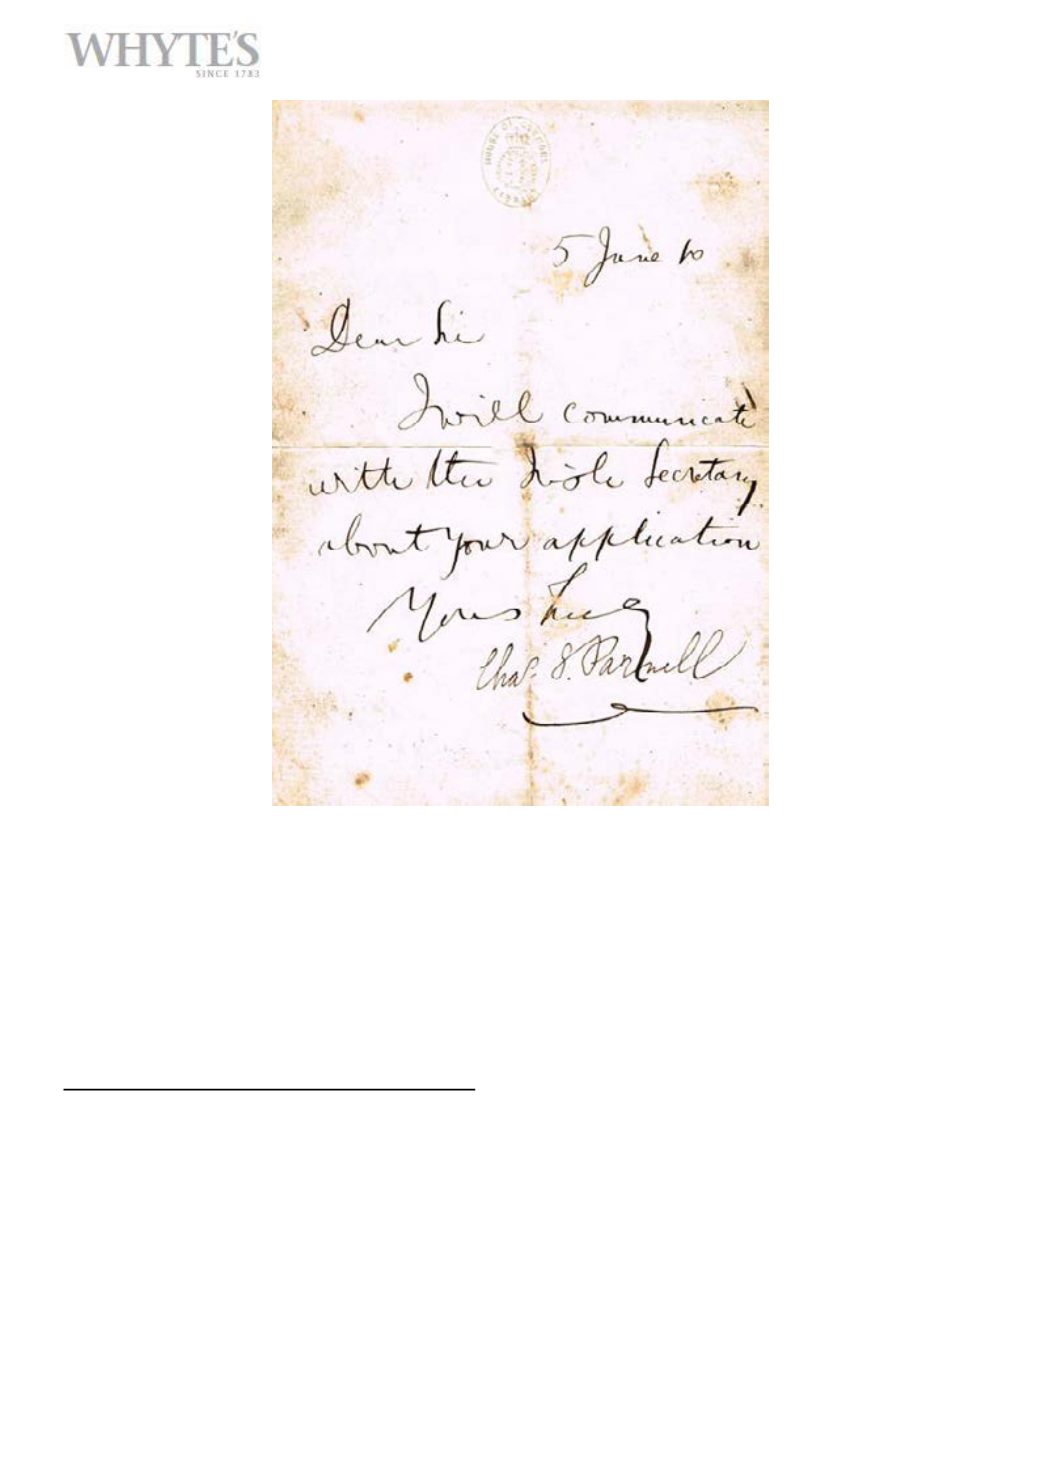 WHYTE'S
SINCE 1783
HOUSE OF COMMONS
LIBRARY
5 June
Dear Sir
I will communicate
with the Irish Secretary
about your application
Yours truly
Chas. S. Parnell